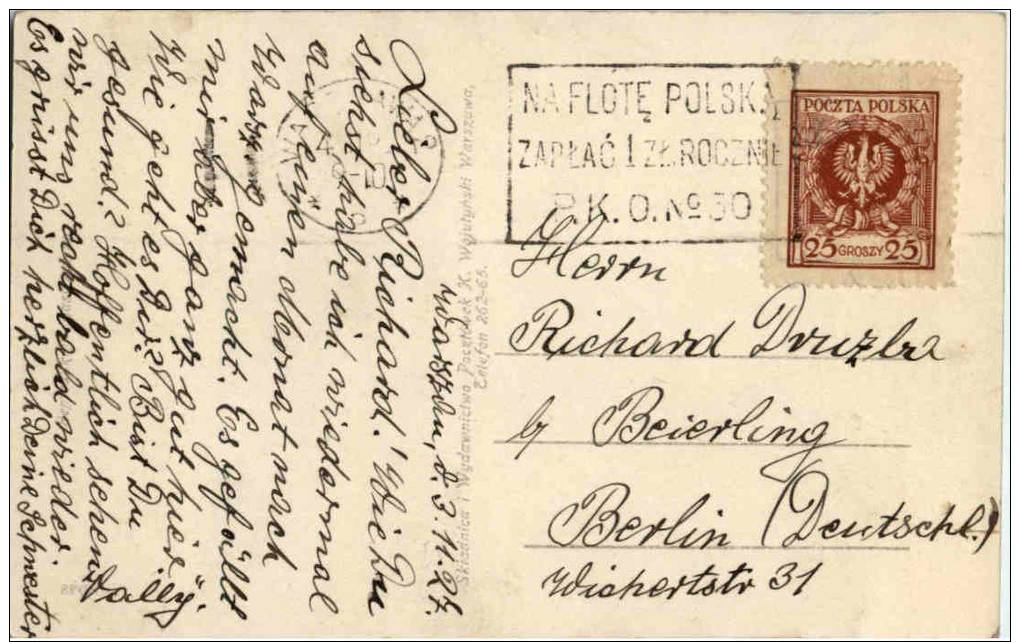 Warschau, d. 3.11.24.
Lieber Richard! Wie Du
siehst habe ich wiedermal
auf einen Monat nach
Warschau gemacht. Es gefällt
mir aber ganz gut hier.
Wie geht es Dir? Bist Du
gesund? Hoffentlich sehen
wir uns recht bald wieder.
Es grüsst Dich herzlich Deine Schwester
Vally.
Składnica i Wydawnictwo Pocztówek K. Wojutyński Warszawa,
Telefon 262-63.
NA FLOTĘ POLSKĄ
ZAPŁAĆ 1 ZŁ. ROCZNIE
P.K.O. No 30
POCZTA POLSKA
25 GROSZY 25
Herrn
Richard Druzba
b/ Beierling
Berlin (Deutschl.)
Wichertstr 31